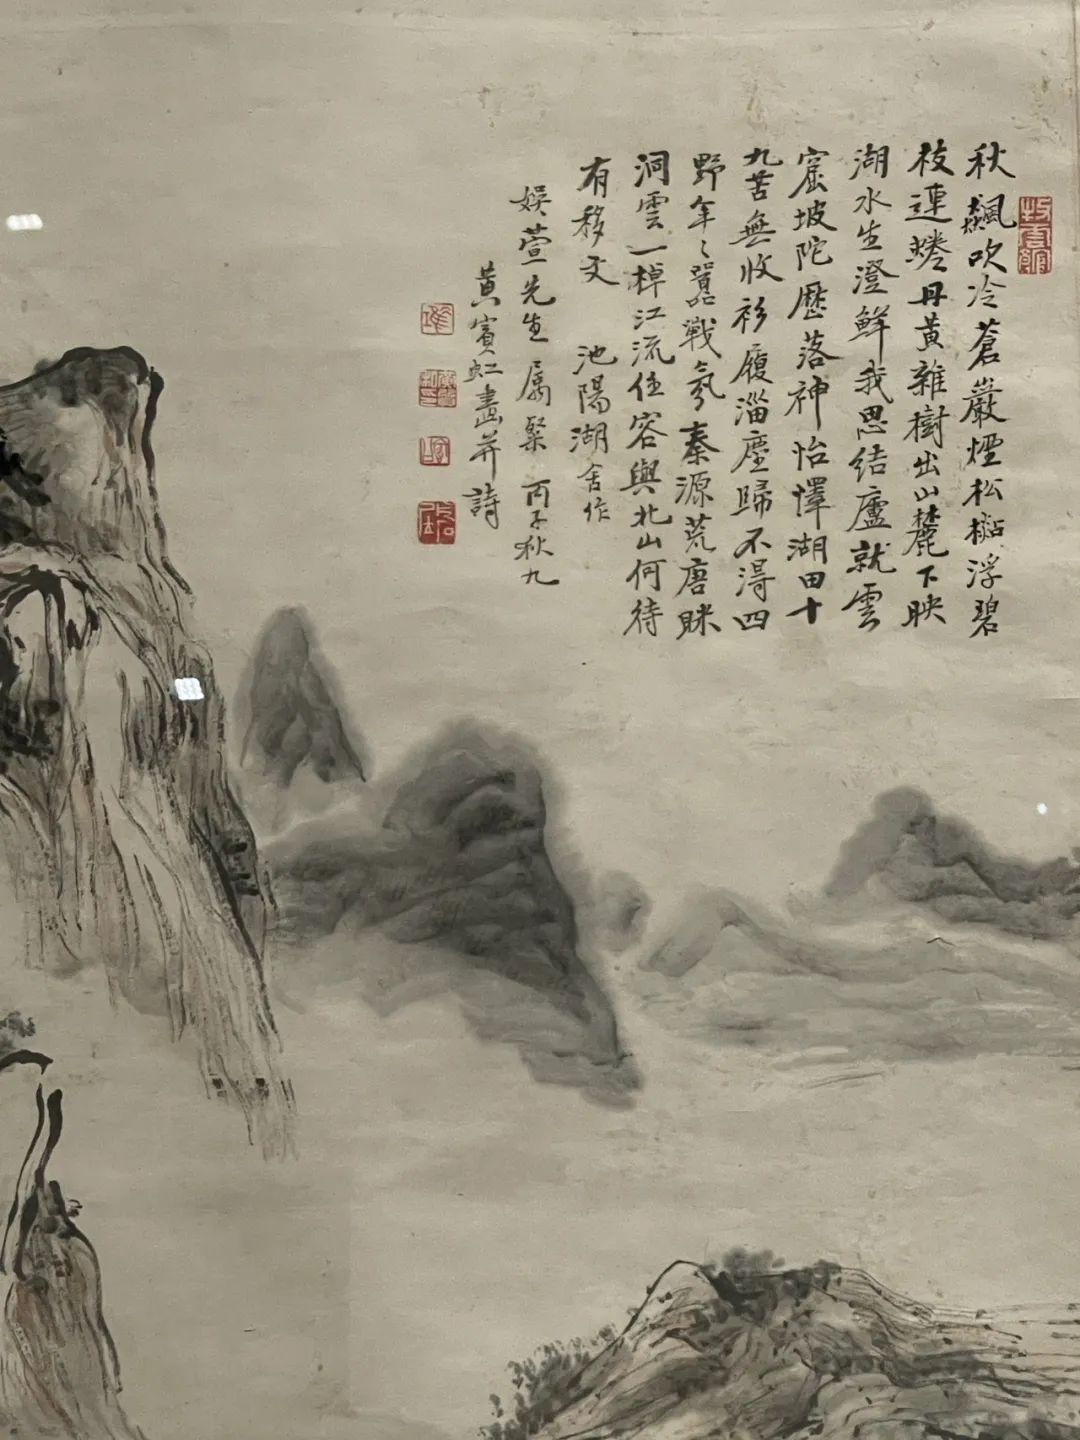 秋飆吹冷蒼巖煙松樾浮碧
枝連蜷丹黃雜樹出山麓下映
湖水生澄鮮我思結廬就雲
窟坡陀歷落神怡懌湖田十
九苦無收衫履淄塵歸不得四
野年〻囂戰氛秦源荒唐眯
洞雲一棹江流任容與北山何待
有移文 池陽湖舍作
娛萱先生屬粲 丙子秋九
黃賓虹畫并詩